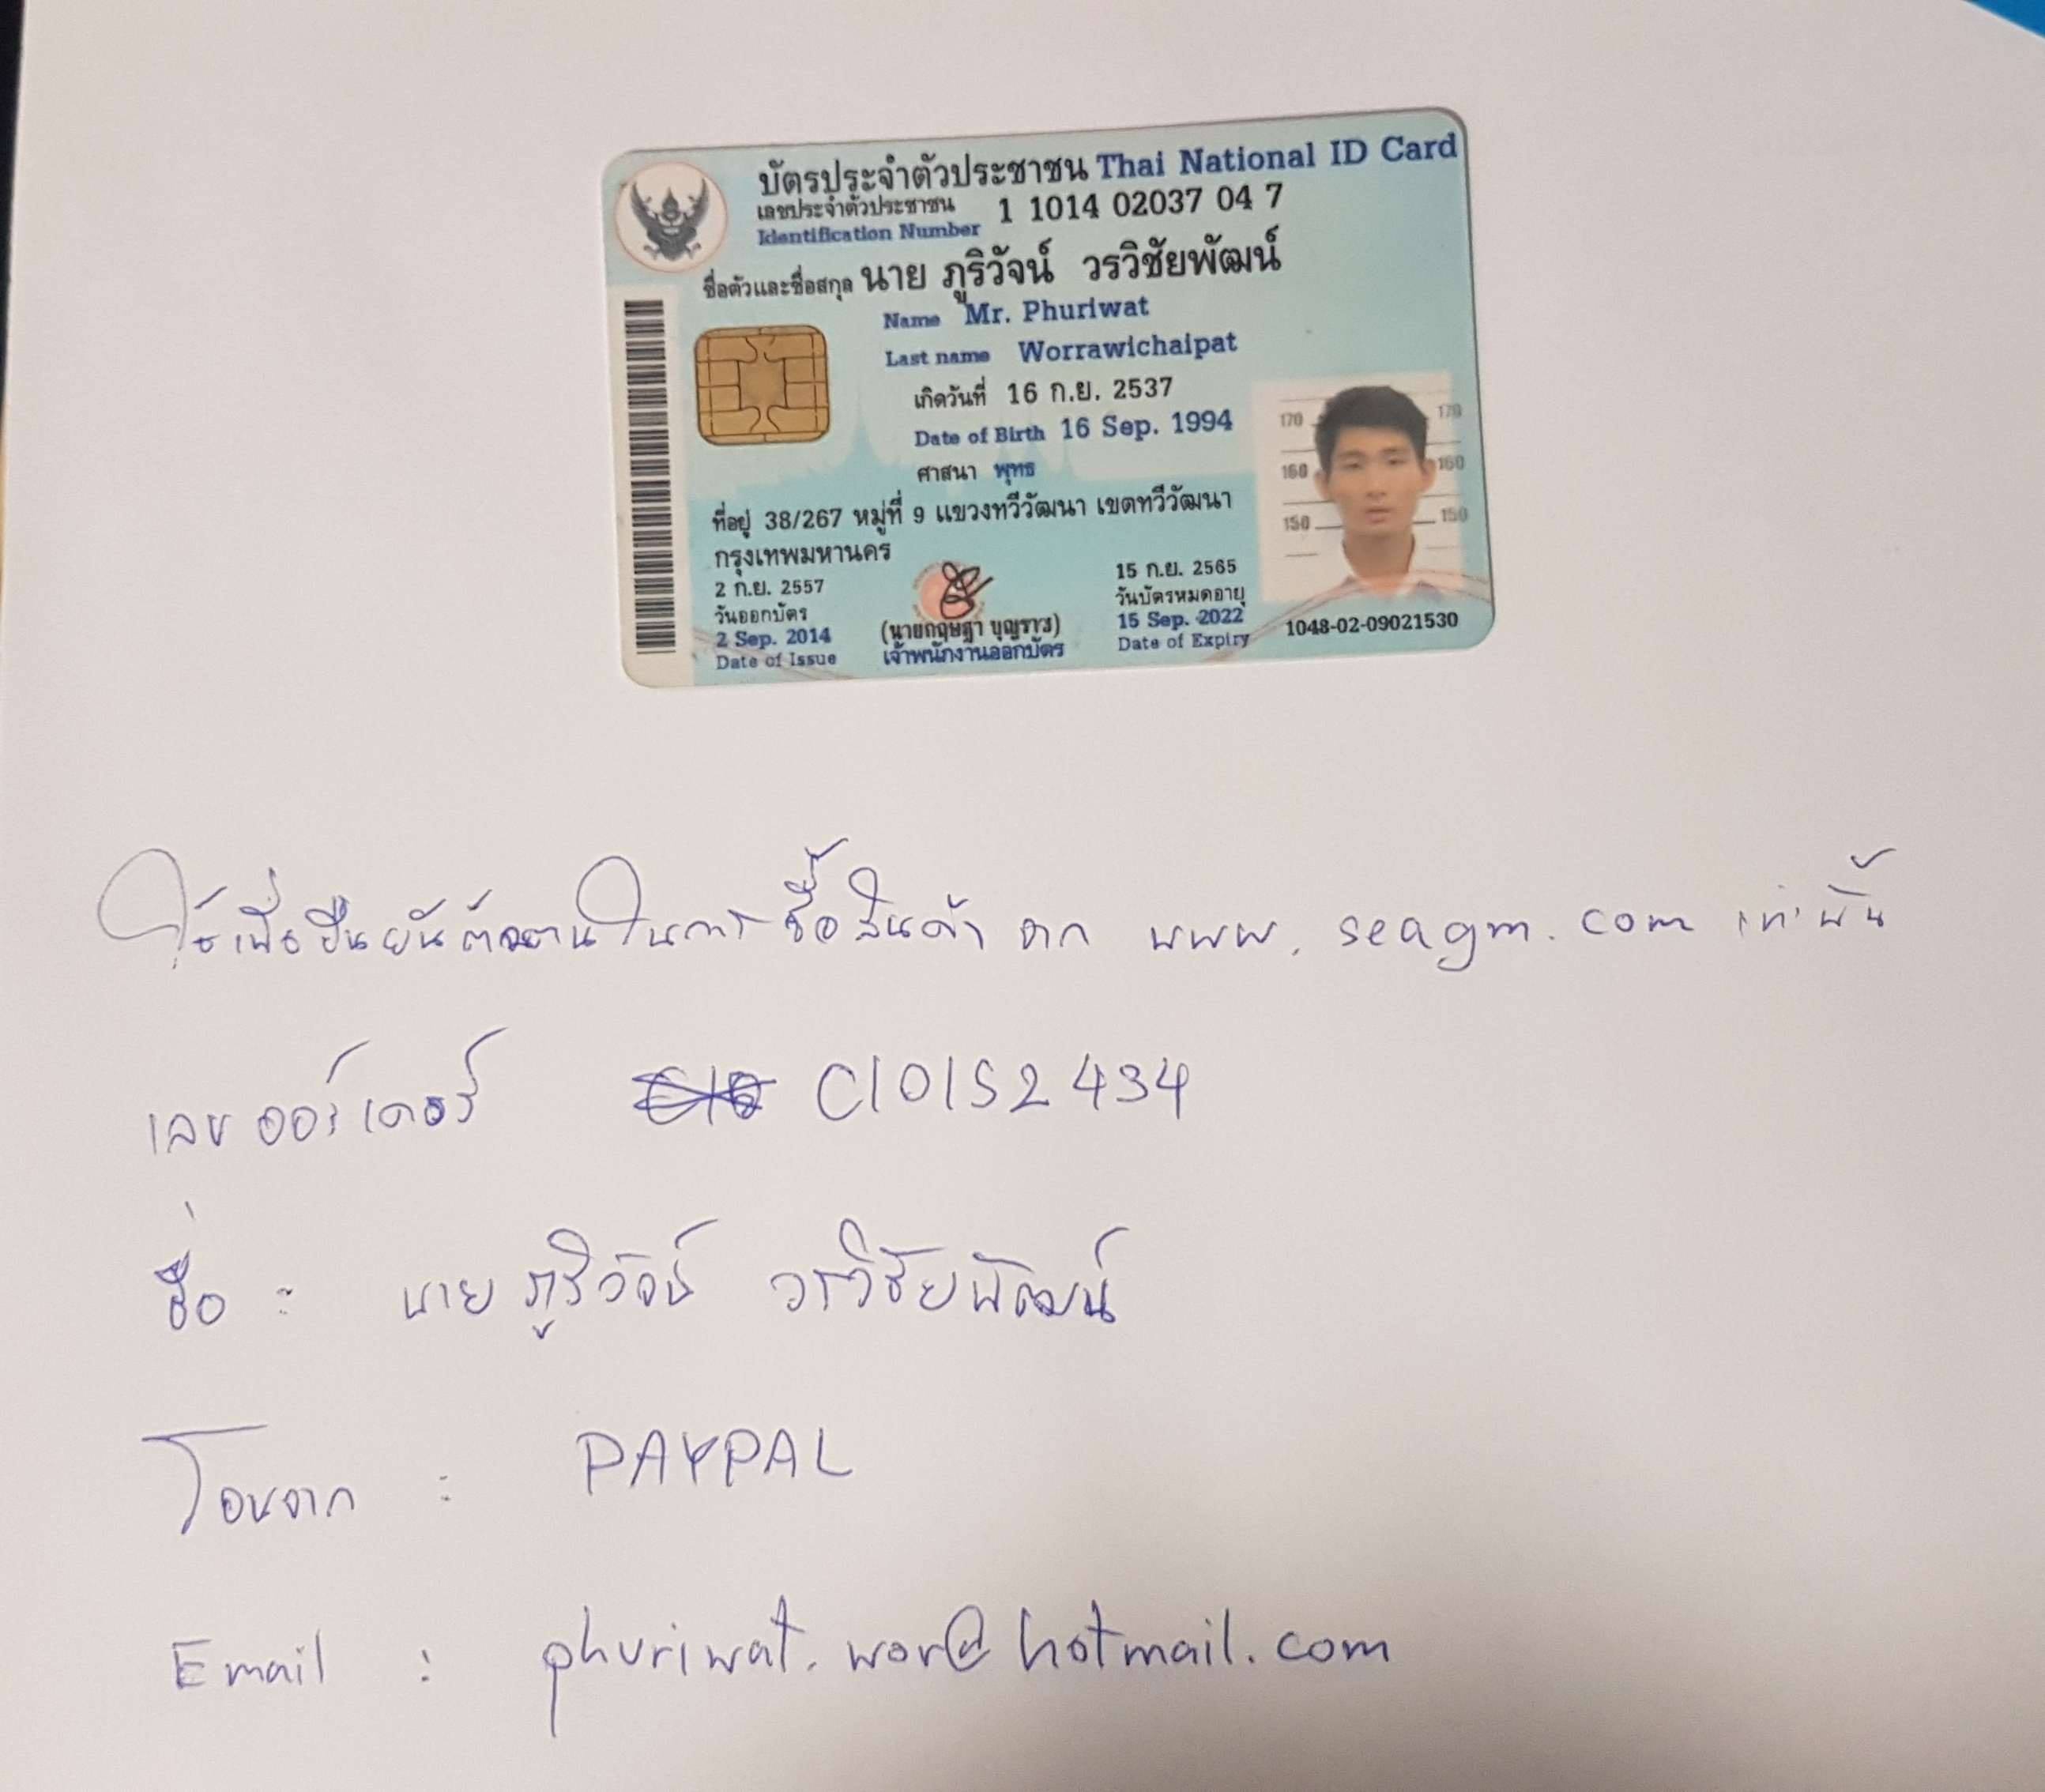 บัตรประจำตัวประชาชน Thai National ID Card
เลขประจำตัวประชาชน 1 1014 02037 04 7
Identification Number
ชื่อตัวและชื่อสกุล นาย ภูริวัจน์ วรวิชัยพัฒน์
Name Mr. Phuriwat
Last name Worrawichaipat
เกิดวันที่ 16 ก.ย. 2537
Date of Birth 16 Sep. 1994
ศาสนา พุทธ
ที่อยู่ 38/267 หมู่ที่ 9 แขวงทวีวัฒนา เขตทวีวัฒนา
กรุงเทพมหานคร
2 ก.ย. 2557
วันออกบัตร
2 Sep. 2014
Date of Issue
(นายกฤษฎา บุญราช)
เจ้าพนักงานออกบัตร
15 ก.ย. 2565
วันบัตรหมดอายุ
15 Sep. 2022
Date of Expiry
170 170
160 160
150 150
1048-02-09021530
ใช้เพื่อยืนยันตัวตนในการซื้อสินค้า จาก www.seagm.com เท่านั้น
เลขออร์เดอร์ C10152434
ชื่อ : นาย ภูริวัจน์ วรวิชัยพัฒน์
โอนจาก : PAYPAL
Email : phuriwat.wor@hotmail.com